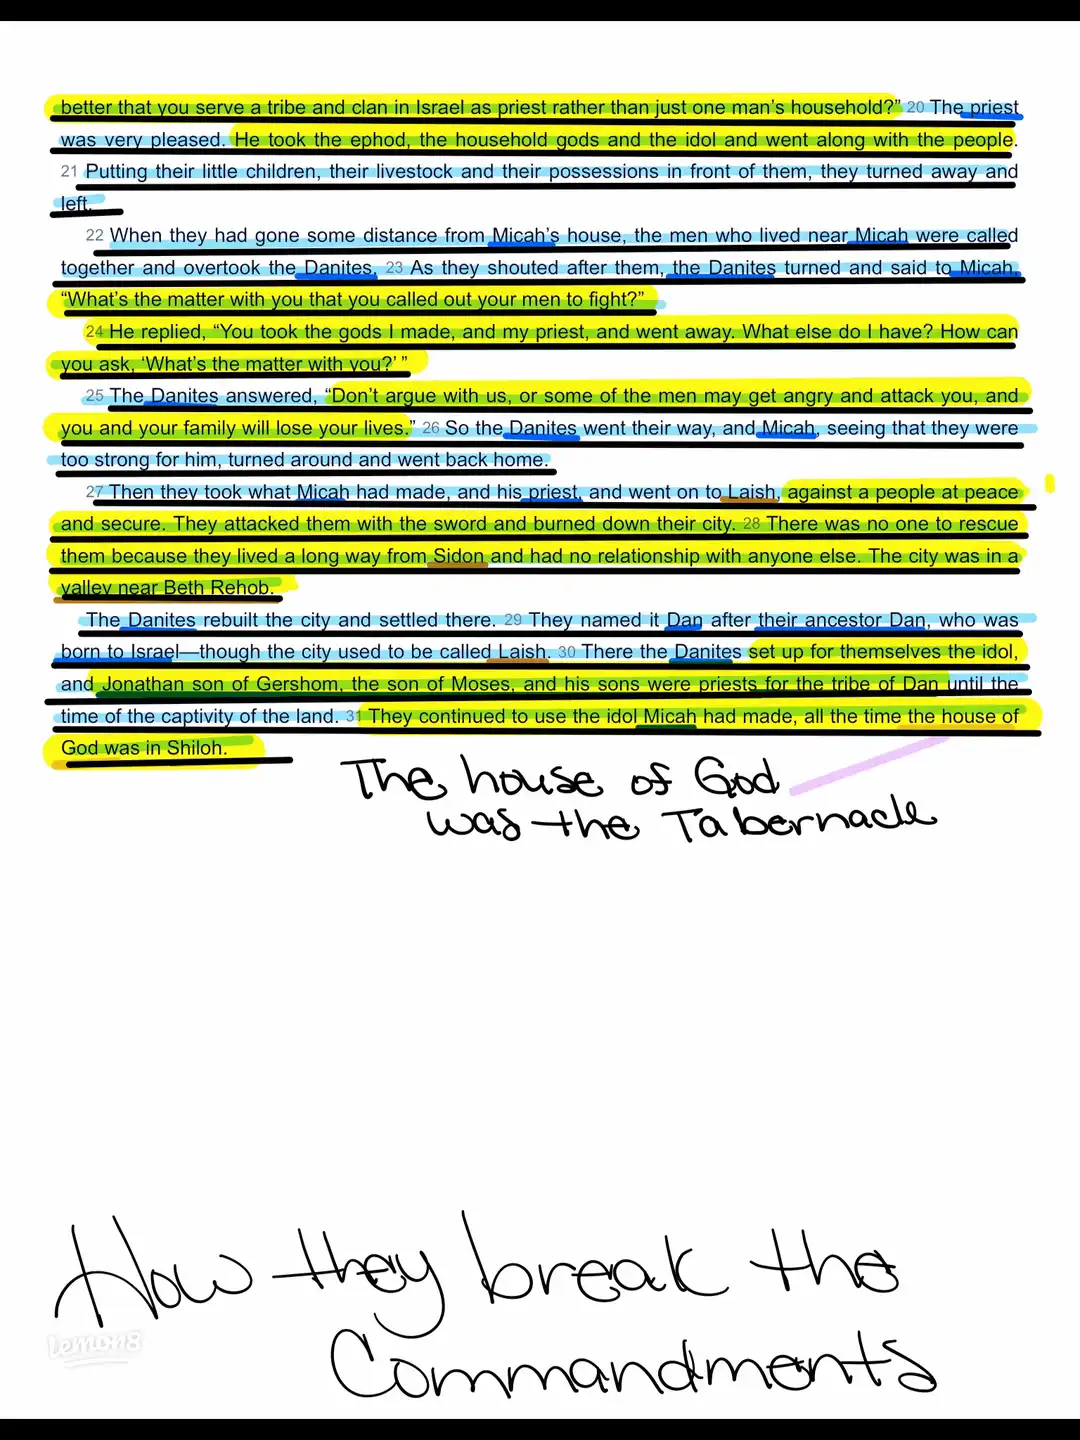 better that you serve a tribe and clan in Israel as priest rather than just one man’s household?” 20 The priest
was very pleased. He took the ephod, the household gods and the idol and went along with the people.
21 Putting their little children, their livestock and their possessions in front of them, they turned away and
left.
22 When they had gone some distance from Micah’s house, the men who lived near Micah were called
together and overtook the Danites. 23 As they shouted after them, the Danites turned and said to Micah,
“What’s the matter with you that you called out your men to fight?”
24 He replied, “You took the gods I made, and my priest, and went away. What else do I have? How can
you ask, ‘What’s the matter with you?’ ”
25 The Danites answered, “Don’t argue with us, or some of the men may get angry and attack you, and
you and your family will lose your lives.” 26 So the Danites went their way, and Micah, seeing that they were
too strong for him, turned around and went back home.
27 Then they took what Micah had made, and his priest, and went on to Laish, against a people at peace
and secure. They attacked them with the sword and burned down their city. 28 There was no one to rescue
them because they lived a long way from Sidon and had no relationship with anyone else. The city was in a
valley near Beth Rehob.
The Danites rebuilt the city and settled there. 29 They named it Dan after their ancestor Dan, who was
born to Israel—though the city used to be called Laish. 30 There the Danites set up for themselves the idol,
and Jonathan son of Gershom, the son of Moses, and his sons were priests for the tribe of Dan until the
time of the captivity of the land. 31 They continued to use the idol Micah had made, all the time the house of
God was in Shiloh.
The house of God
was the Tabernacle
How they break the
Commandments
lemon8